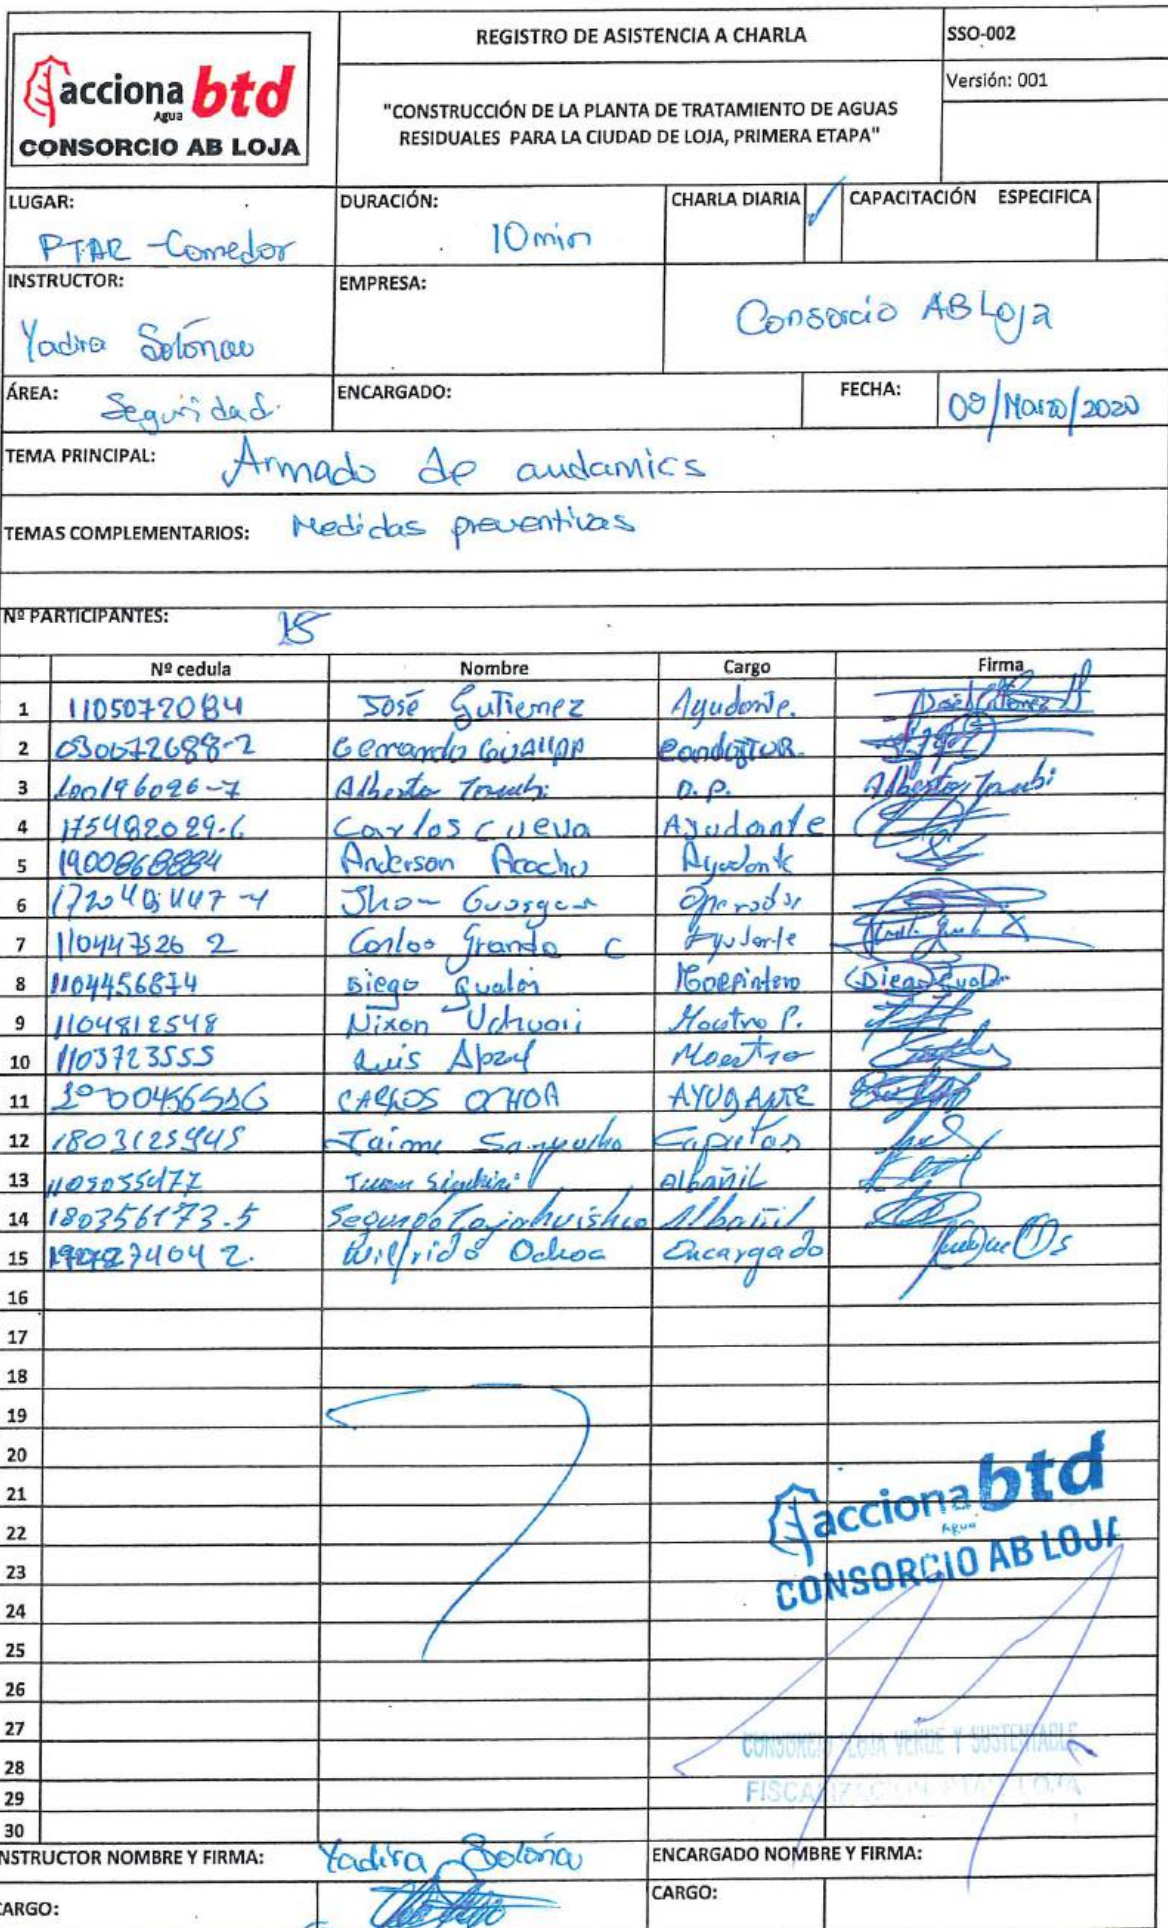 acciona btd
Agua
CONSORCIO AB LOJA
REGISTRO DE ASISTENCIA A CHARLA
SSO-002
Versión: 001
"CONSTRUCCIÓN DE LA PLANTA DE TRATAMIENTO DE AGUAS
RESIDUALES PARA LA CIUDAD DE LOJA, PRIMERA ETAPA"
LUGAR: PTAR - Comedor
DURACIÓN: 10 min
CHARLA DIARIA ✓
CAPACITACIÓN ESPECIFICA
INSTRUCTOR: Yadira
EMPRESA: Consorcio AB Loja
ÁREA: Seguridad.
ENCARGADO:
FECHA: 09/Marzo/2020
TEMA PRINCIPAL: Armado de andamios
TEMAS COMPLEMENTARIOS: Medidas preventivas
Nº PARTICIPANTES: 15
Nº cedula Nombre Cargo Firma
1 1105072084 José Gutierrez Ayudante.
2 030072688-2 Gerardo
3 100196026-7 Alberto O.P. Alberto
4 175482029-6 Carlos Cueva Ayudante
5 Anderson Ayudante
6 Jhon Operador
7 110447526 2 Carlos Granda C Ayudante
8 1104456874 Diego Gualan Carpintero Diego Gualan
9 1104812548 Nixon Uchuari Maestro P.
10 1103723555 Luis Maestro
11 CARLOS OCHOA AYUDANTE
12 1803125945 Jaime Capataz
13 1105055477 Albañil
14 180356173-5 Segundo Albañil
15 Wilfrido Ochoa Encargado
16
17
18
19
20
21
22
23
24
25
26
27
28
29
30
acciona btd
Agua
CONSORCIO AB LOJA
CONSORCIO LOJA VERDE Y SUSTENTABLE
FISCALIZACION PTAR LOJA
NSTRUCTOR NOMBRE Y FIRMA: Yadira
ENCARGADO NOMBRE Y FIRMA:
CARGO:
CARGO: